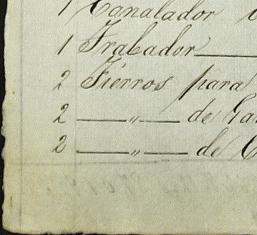 1 Canalador
1 Trabador
2 Fierros para
2 —〃— de
2 —〃— de